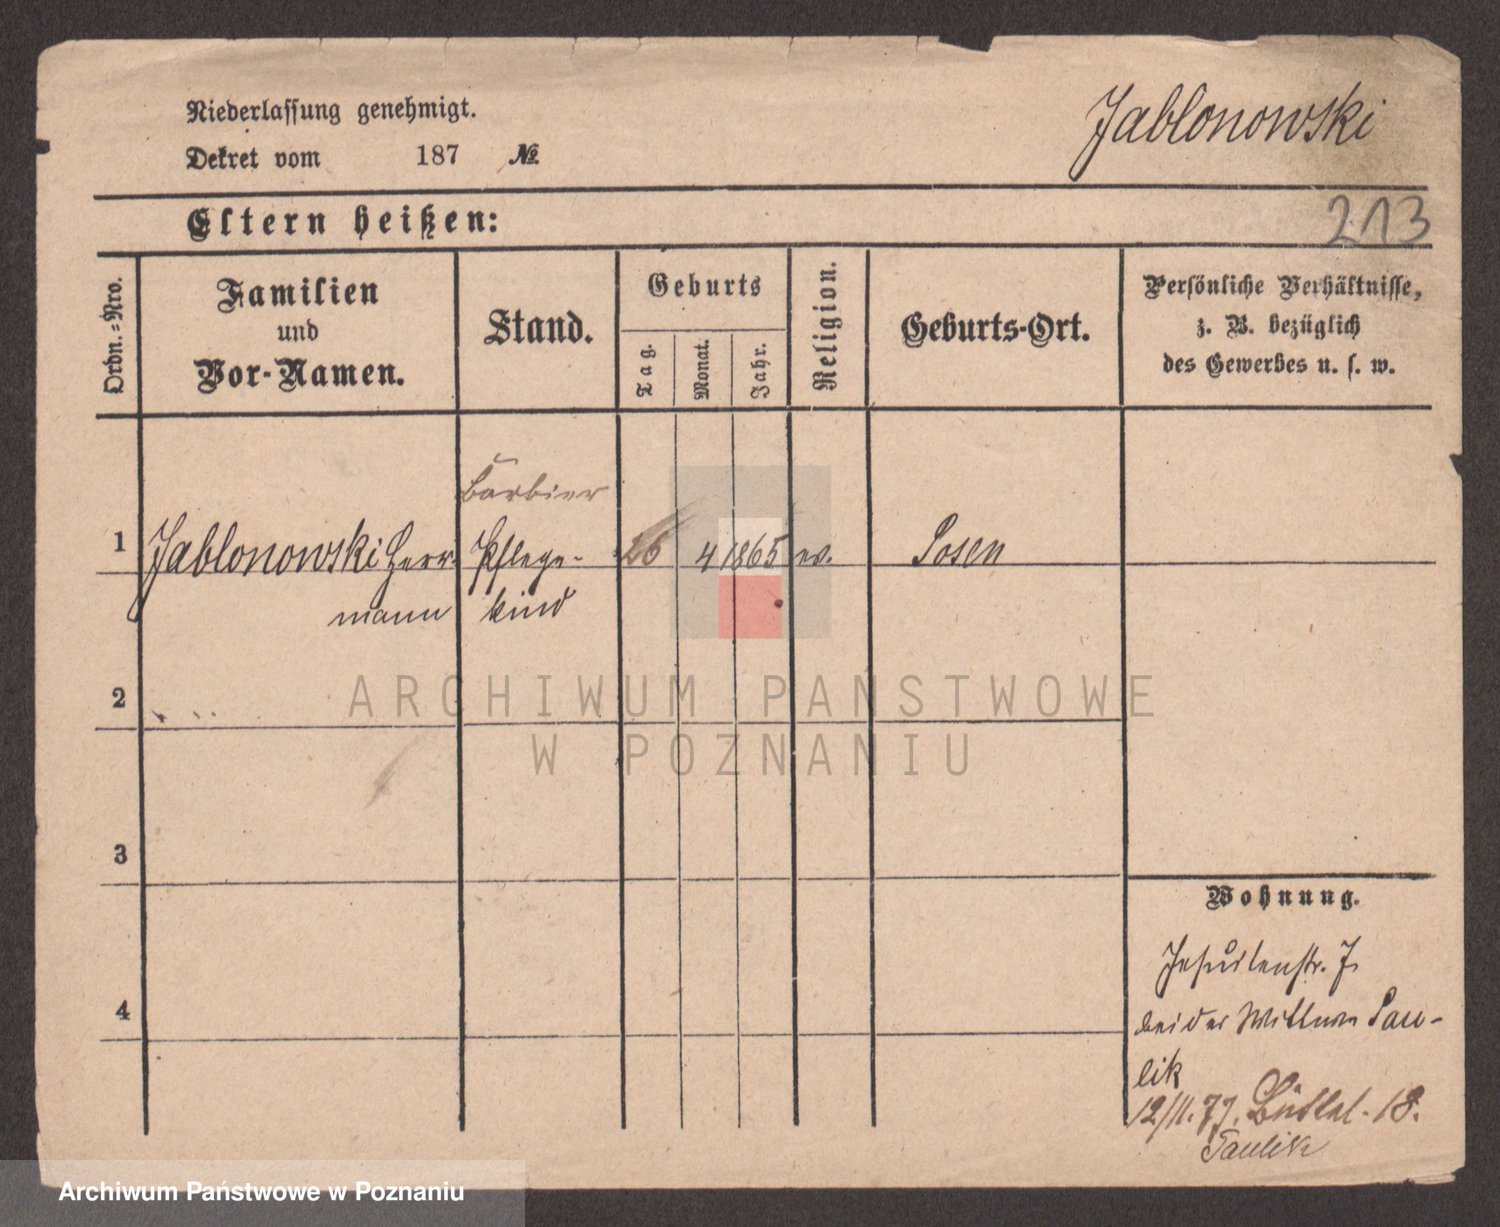 Niederlassung genehmigt.
Jablonowski
Dekret vom 187 №
Eltern heißen:
213
Ordn.-Nro.
Familien
und
Vor-Namen.
Stand.
Geburts
Tag.
Monat.
Jahr.
Religion.
Geburts-Ort.
Persönliche Verhältnisse,
z. B. bezüglich
des Gewerbes u. s. w.
Barbier
1 Jablonowski Herr- Pflege- 26 4 1865 ev. Posen
mann kind
2
ARCHIWUM PAŃSTWOWE
W POZNANIU
3
Wohnung.
Jesuitenstr. 7
4
bei der Wittwe Pau-
lik
12/11. 77. 18.
Paulik
Archiwum Państwowe w Poznaniu